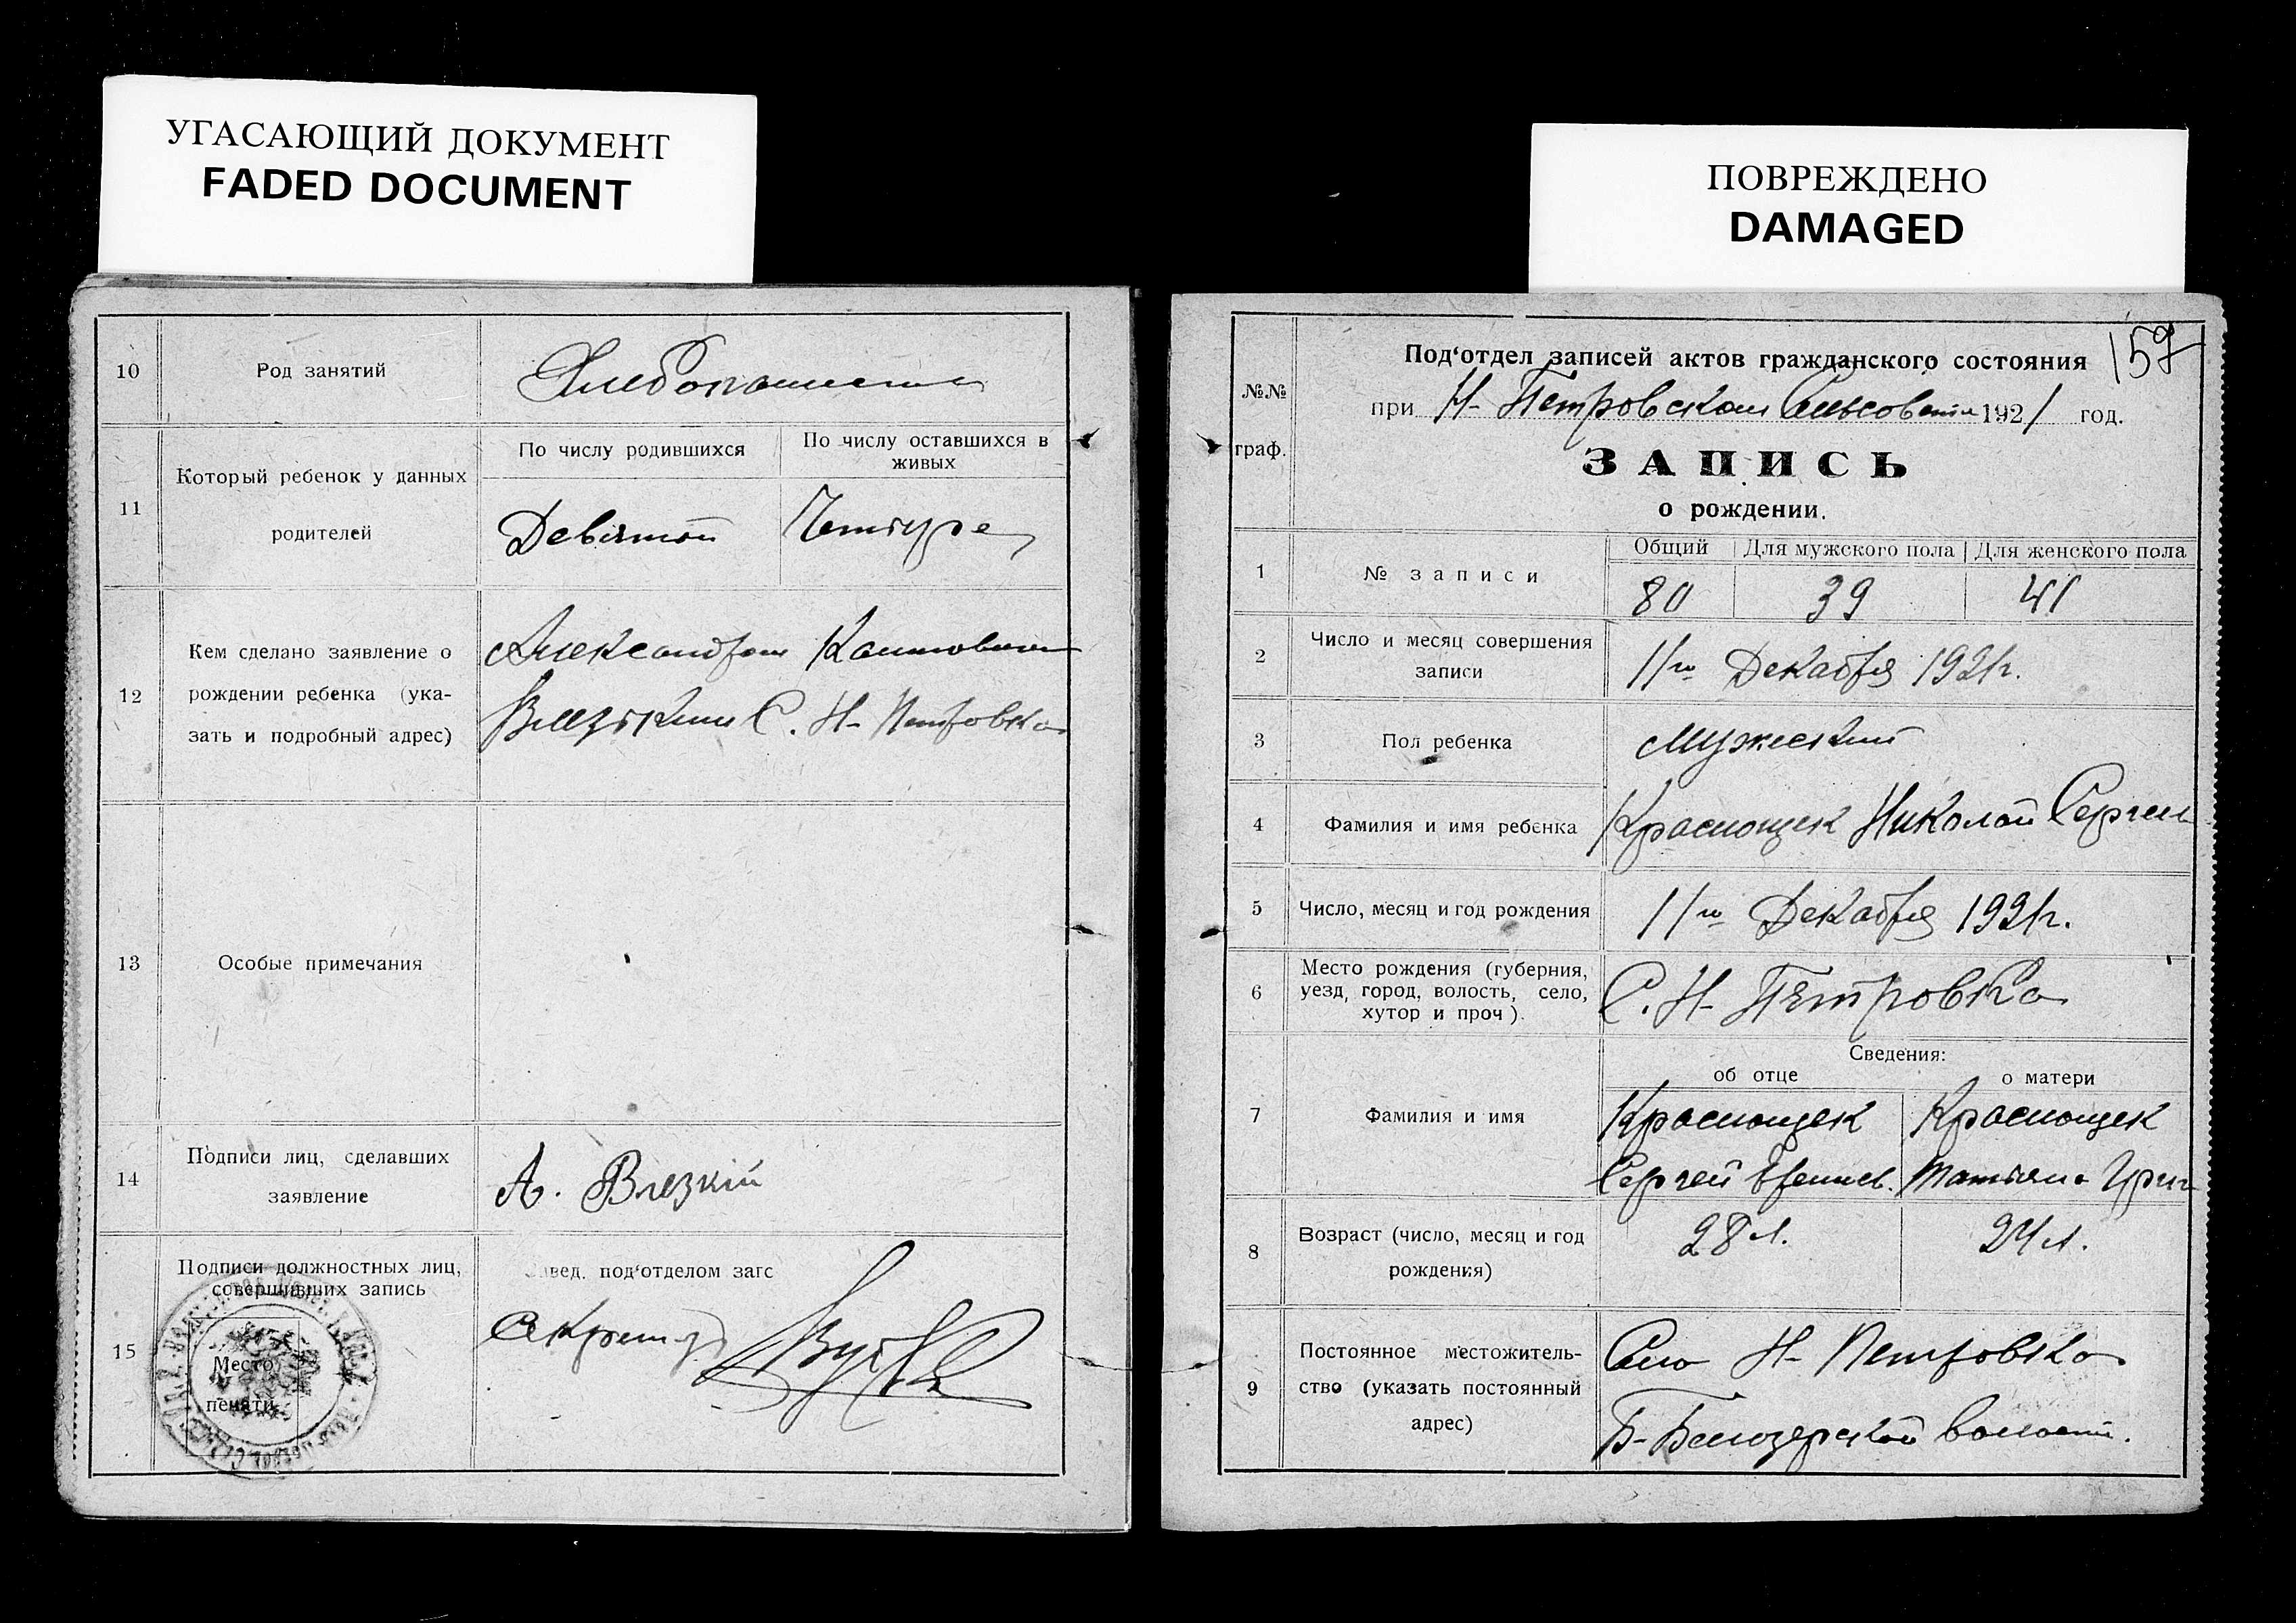 УГАСАЮЩИЙ ДОКУМЕНТ
FADED DOCUMENT
10
Род занятий
Хлебопашество
11
Который ребенок у данных
родителей
По числу родившихся
По числу оставшихся в
живых
Девятой
Четыре
12
Кем сделано заявление о
рождении ребенка (ука-
зать и подробный адрес)
Александром
С. Н-Петровка
13
Особые примечания
14
Подписи лиц, сделавших
заявление
А. Влезкій
15
Подписи должностных лиц,
совершивших запись
Место
печяти
завед. под‘отделом загс
Секретар
ПОВРЕЖДЕНО
DAMAGED
157
№№
граф.
Под‘отдел записей актов гражданского состояния
при Н-Петровском Сельсовети 1921 год.
ЗАПИСЬ
о рождении.
1
№ записи
Общий
Для мужского пола
Для женского пола
80
39
41
2
Число и месяц совершения
записи
11го Декабря 1921г.
3
Пол ребенка
Мужеский
4
Фамилия и имя ребенка
Краснощек Николай Сергеев
5
Число, месяц и год рождения
11го Декабря 1921г.
6
Место рождения (губерния,
уезд, город, волость, село,
хутор и проч).
С. Н-Петровка
Сведения:
об отце
о матери
7
Фамилия и имя
Краснощек
Краснощек
Сергей
Татьяна Григ
8
Возраст (число, месяц и год
рождения)
28 л.
24 л.
9
Постоянное местожитель-
ство (указать постоянный
адрес)
Село Н-Петровка
Б-Белозерской волости.